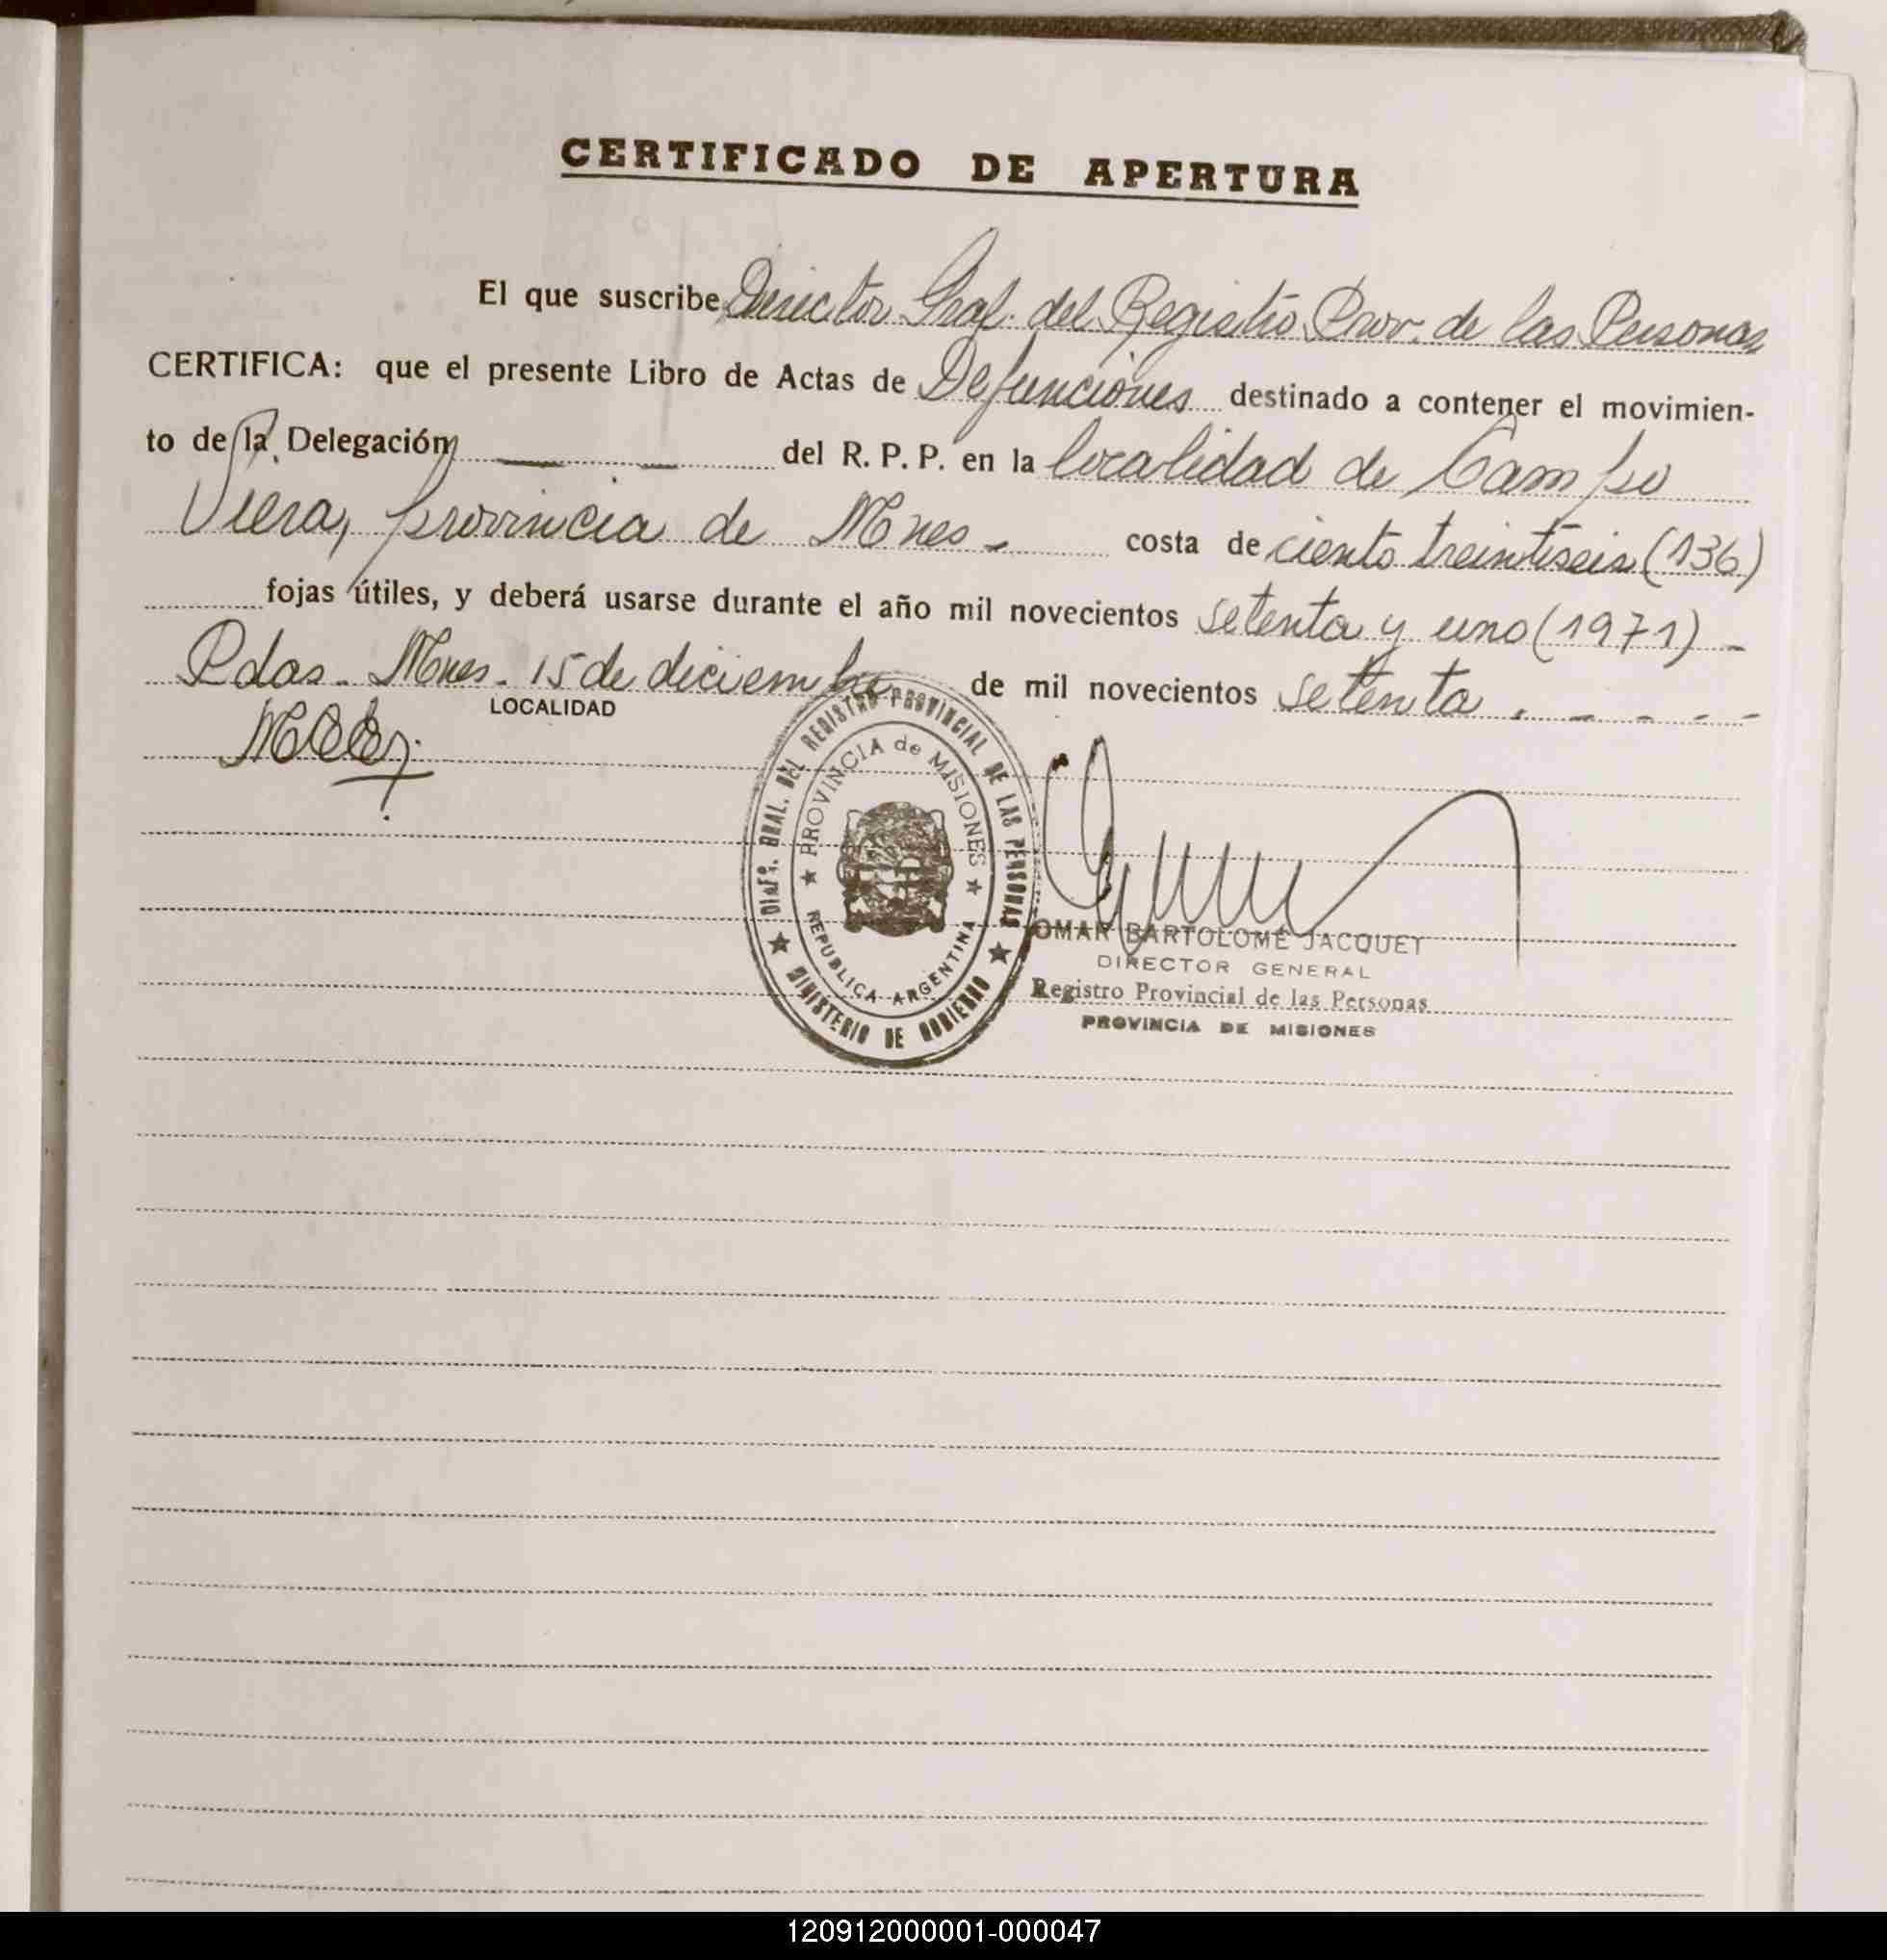 CERTIFICADO DE APERTURA
El que suscribe Director Gral. del Registro Prov. de las Personas
CERTIFICA: que el presente Libro de Actas de Defunciones destinado a contener el movimien-
to de la Delegación — — del R. P. P. en la localidad de Campo
Viera, provincia de Mnes - costa de ciento treintiseis (136)
fojas útiles, y deberá usarse durante el año mil novecientos setenta y uno (1971) -
Pdas. Mnes. 15 de diciembre de mil novecientos setenta . - - - -
LOCALIDAD
DIREC. GRAL. DEL REGISTRO PROVINCIAL DE LAS PERSONAS
PROVINCIA de MISIONES
REPUBLICA ARGENTINA
MINISTERIO DE GOBIERNO
OMAR BARTOLOMÉ JACQUET
DIRECTOR GENERAL
Registro Provincial de las Personas
PROVINCIA DE MISIONES
120912000001-000047